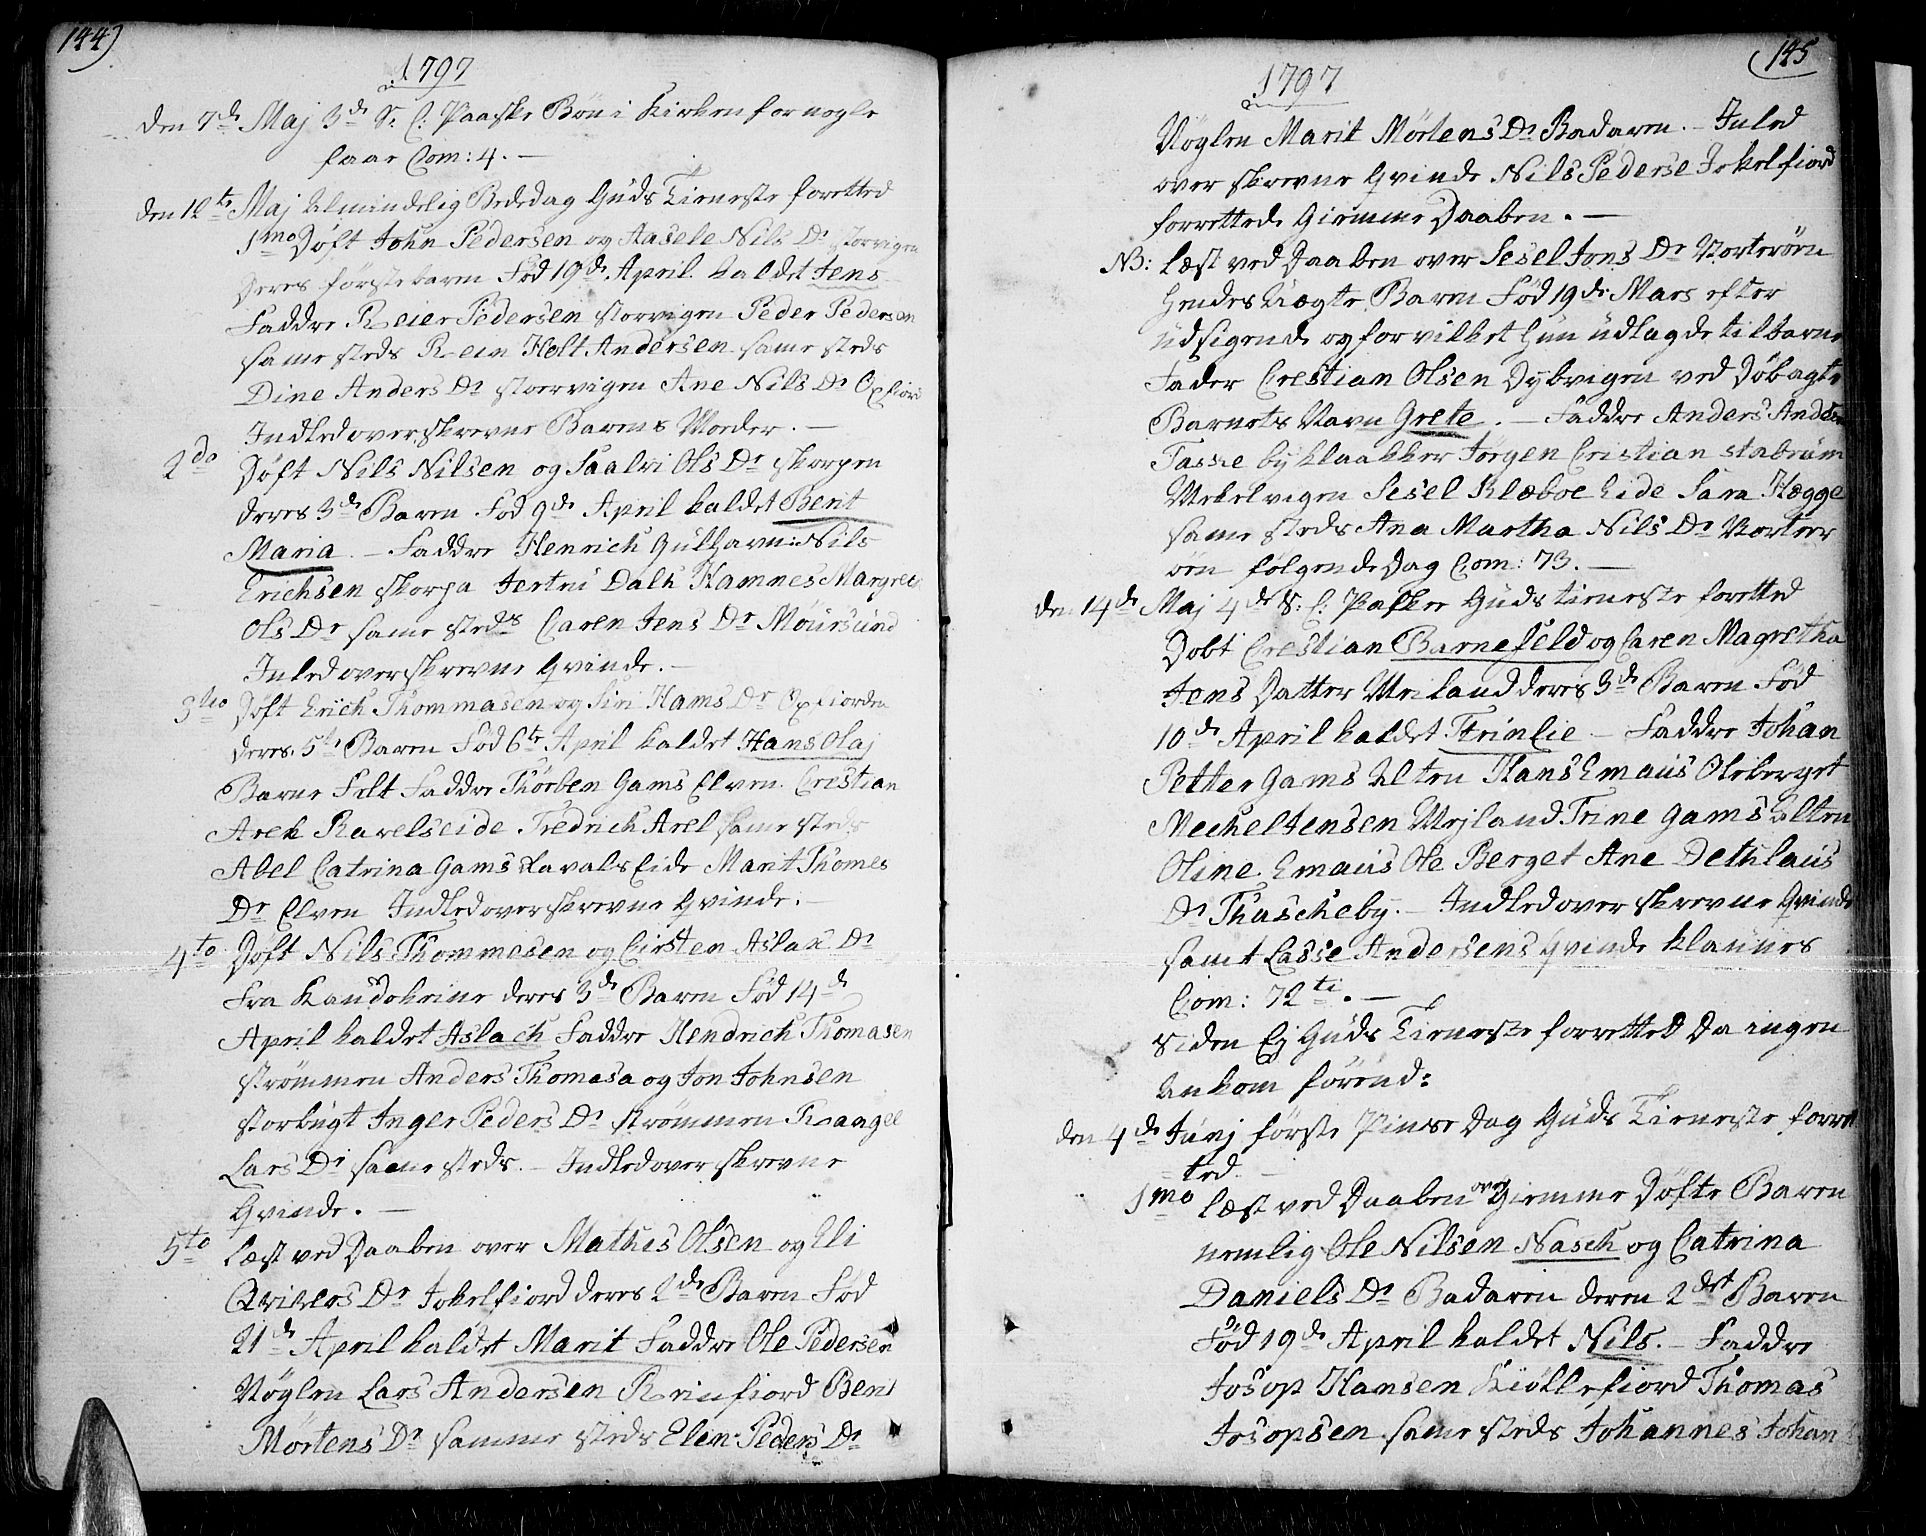 144)
1797
den 7de Maj 3de S: E: Paaske Bön i Kirken for nogle
faae Com: 4. —
den 12te Maj Almindelig Bededag Guds Tieneste foretted
1mo Döft John Pedersen og Aasele Nils Dr storvigen
Deres förste barn Föd 19de April kaldet Jens
Faddre Reier Pedersen storvigen Peder Pedersen
same steds Rein Holt Andersen same steds
Dine Anders Dr storvigen Ane Nils Dr Oxfiord
Indled overskrevne Barns Moder. —
2do Döft Nils Nilsen og Saalvi Ols Dr skorpen
deres 3de Baren Föd 9de April kaldet Berit
Maria. — Faddre Henrich Gulhavn: Nils
Erichsen skorpa Jertru Dalh Hamnes Margret
Ols Dr same steds Caren Jens Dr Möursund
Inled overskrevne Qvinde. —
3tio Döft Erich Thommasen og Siri Hans Dr Oxfiorden
deres 5te Baren Föd 6te April kaldet Hans Olaj
Barne Felt Faddre Thörben Gams Elven Crestian
Arek Ravelseide Fredrich Arel same steds
Abel Catrina Gams Ravals Eide Marit Thomes
Dr Elven Indled overskrevne Qvinde. —
4to Döft Nils Thommesen og Cirsten Aslak Dr
Fra Kaudokeine deres 3de Baren Föd 14de
April kaldet Aslach Faddre Hendrich Thomasen
strömmen Anders Thomasa og Jon Johnsen
storbugt Inger Peders Dr strömmen Raangel
Lars Dr same steds. — Indled overskrevne
Qvinde. —
5to Læst ved Daaben over Mathis Olsen og Eli
Dr Jokelfiord deres 2de Baren Föd
21de April kaldet Marit Faddre Ole Pedersen
Nöglen Lars Andersen Reinfiord Berit
Mörtens Dr samme steds Elen Peders Dr
145
1797
Nöglen Marit Mörtens Dr Badaren. — Inled
over skrevne Qvinde Nils Pederse Jokelfiord
forrettede Giemme Daaben. —
NB: Læst ved Daaben over Sesel Jons Dr Vorterören
Hendes Uægte Baren Föd 19de Mars efter
udsigende og for vilket Hun udlagde til barne
Fader Crestian Olsen Dybvigen ved Döbagte
Barnets Navn Grete. — Faddre Anders Ander
Tasse by klaakker Jörgen Cristian stabrum
Mekelvigen Sesel Klæboe Eide Sara Hegge
same steds Ana Martha Nils Dr Vorter
ören fölgende Dag Com: 73. —
den 14de Maj 4de S: E: Pasker Guds tieneste foretted
Döbt Crestian Barnefeld og Caren Magretha
Jens Datter Meiland deres 3de Baren Föd
10de April kaldet Trinlie — Faddre Johan
Petter Gams Alten Hans Emaus Oleberget
Mechel Jensen Mejland Trine Gams Alten
Oline Emaus Ole Berget Ane Dethlaus
Dr Thascheby. — Indled over skrevne Qvinde
samt Lasse Andersens Qvinde Klaunes
Com: 72ti. —
Siden Ej Guds Tieneste forretted Da ingen
Ankom förend:
den 4de Junj förste Pinse Dag Guds Tieneste forret
ted. —
1mo Læst ved Daaben over Giemme Döfte Baren
nemlig Ole Nilsen Nasch og Catrina
Daniels Dr Badaren deren 2det Baren
Föd 19de April kaldet Nils. — Faddre
Josop Hansen Kiöllefiord Thomas
Josopsen same steds Johannes Johan